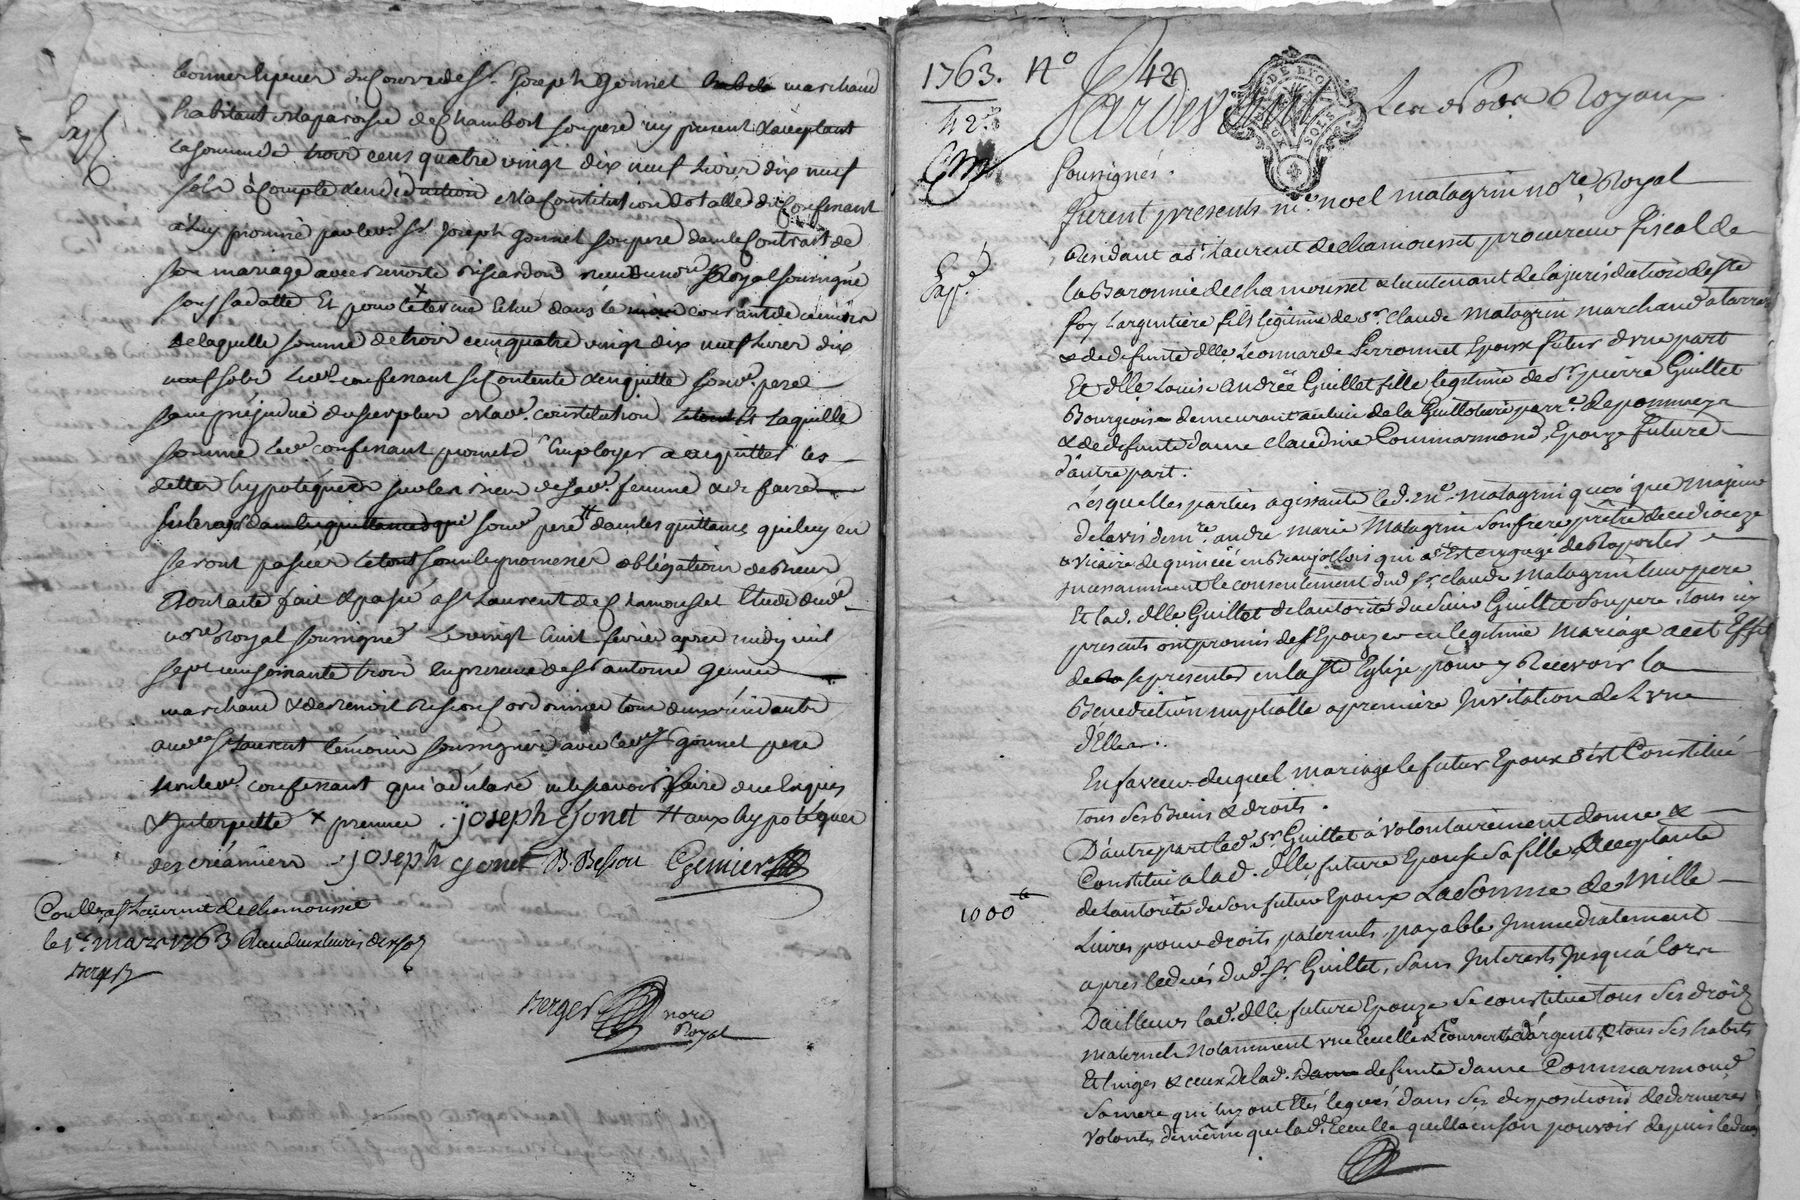 Exp.
habitant en la paroisse de Chambost son pere icy present & acceptant
la somme de trois cens quatre vingt dix neuf Livres dix neuf
sols à compte
a luy promise par led. Sr. Joseph Gonnet son pere dans le Contrat de
son mariage avec Benoite notre Royal soussigné
de laquelle somme de trois cent quatre vingt dix neuf Livres dix
neuf sols led. confessant se Contente & en quitte sond. pere
sans préjudice du surplus de lad. constitution laquelle
somme led. confessant promet d'Employer a acquitter les
dettes hypotequeres sur les biens de sad. femme & de faire
sond. pere dans les quittances qui luy en
seront passées le tout sous les promesses obligations de biens
Dont acte fait & passé a St Laurent de Chamousset Etude dud.
nore. Royal soussigné Le vingt huit fevrier apres midy mil
sept cens soixante trois En presence de Sr antoine Genier
marchand & de Benoit Besson Cordonnier tous deux résidants
aud. St Laurent témoins soussignés avec led. Sr Gonnet pere
non led. confessant qui a déclaré ne le scavoir faire de ce Enquis
& Interpellé x premier . joseph Gonet # aux hypotéques
des créanciers . joseph gonet B. Besson Genier
Conllé a St Laurent de chamousset
le 1er. mars 1763 Reçu deux livres dix sols
Berger
Berger nore
Royal
1763. No 42
42.
Pardevant Les Nores. Royaux
Soussignés.
Exp.
furent presents me. noel matagrin nore. Royal
Residant a St. Laurent de chamousset, procureur fiscal de
la Baronnie de chamousset & lieutenant de la jurisdiction de Ste
foy L'argentiere fils légitime de Sr. Claude Matagrin marchand a tarare
& de defunte dlle. Leonnarde Perronnet Epoux futur d'une part
Et dlle. Louise andrée Guillet fille legitime de Sr. pierre Guillet
Bourgeois demeurant au lieu de la Guillotiere parre. de pommeys
& de defunte dame claudine Commarmond, Epouze future
d'autre part.
Lesquelles parties agissants led. me. matagrin quoi que majeur
de l'avis de mre. andre marie Matagrin son frere prêtre de ce dioceze
& vicaire de quincié en Beaujollois qui s'est engagé de Raporter
incessamment le consentement dud. Sr. claude Matagrin leur pere
Et lad. dlle Guillet de l'autorité du sieur Guillet son pere, tous icy
presents ont promis de s'Epouzer en legitime mariage a cet Effet
de se presenter en la Ste Eglise pour y Recevoir la
Benediction nuptialle a premiere Invitation de L'une
d'Elles.
En faveur duquel mariage le futur Epoux s'est Constitué
tous ses Biens & droits.
D'autre part led. Sr. Guillet a volontairement donné &
Constitué a lad. dlle. future Epouse sa fille acceptante
de l'autorité de son futur Epoux La Somme de Mille
1000 tt
Livres pour droits paternels, payable Immediatement
apres le décés dud. Sr. Guillet, sans Interests Jusqu'alors
D'ailleurs lad. dlle. future Epouze se constitue tous ses droits
maternels Notamment une Ecuelle & couverts d'argent & tous ses habits
Et linges & ceux de lad. Dame defunte dame Commarmond
sa mere qui luy ont Etés legués dans ses dispositions de dernieres
volontés, de même que lad. Ecuelle qu'elle a en son pouvoir depuis le décés